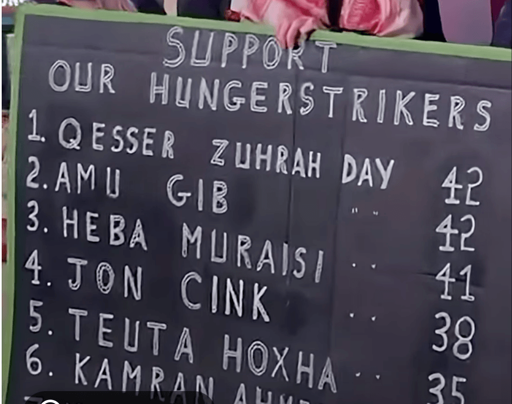 SUPPORT
OUR HUNGERSTRIKERS
1. QESSER ZUHRAH DAY 42
2. AMU GIB " " 42
3. HEBA MURAISI .. 41
4. JON CINK .. 38
5. TEUTA HOXHA .. 35
6. KAMRAN